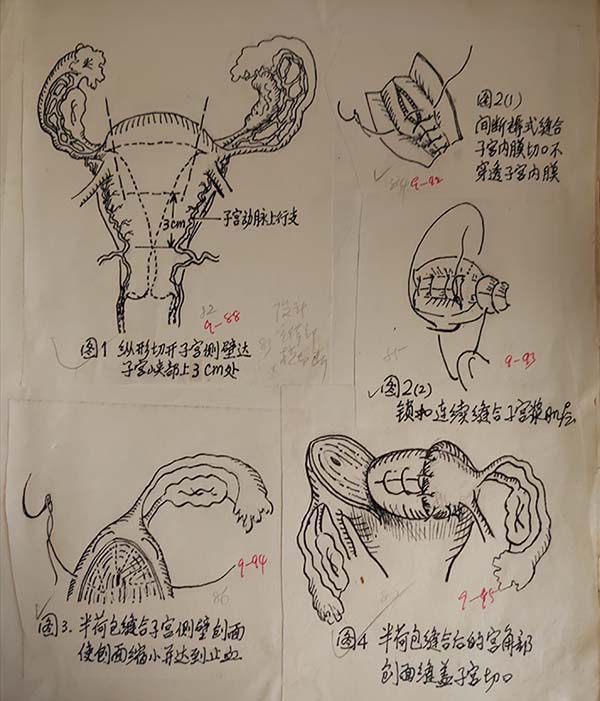 3cm
子宫动脉上行支
82
9-88
83
图1 纵形切开子宫侧壁达
子宫峡部上3cm处
图2(1)
间断褥式缝合
子宫内膜切口不
穿透子宫内膜
84
9-92
85
9-93
图2(2)
锁扣连续缝合子宫浆肌层
9-94
86
图3. 半荷包缝合子宫侧壁创面
使创面缩小并达到止血
9-95
图4 半荷包缝合后的宫角部
创面缝盖子宫切口